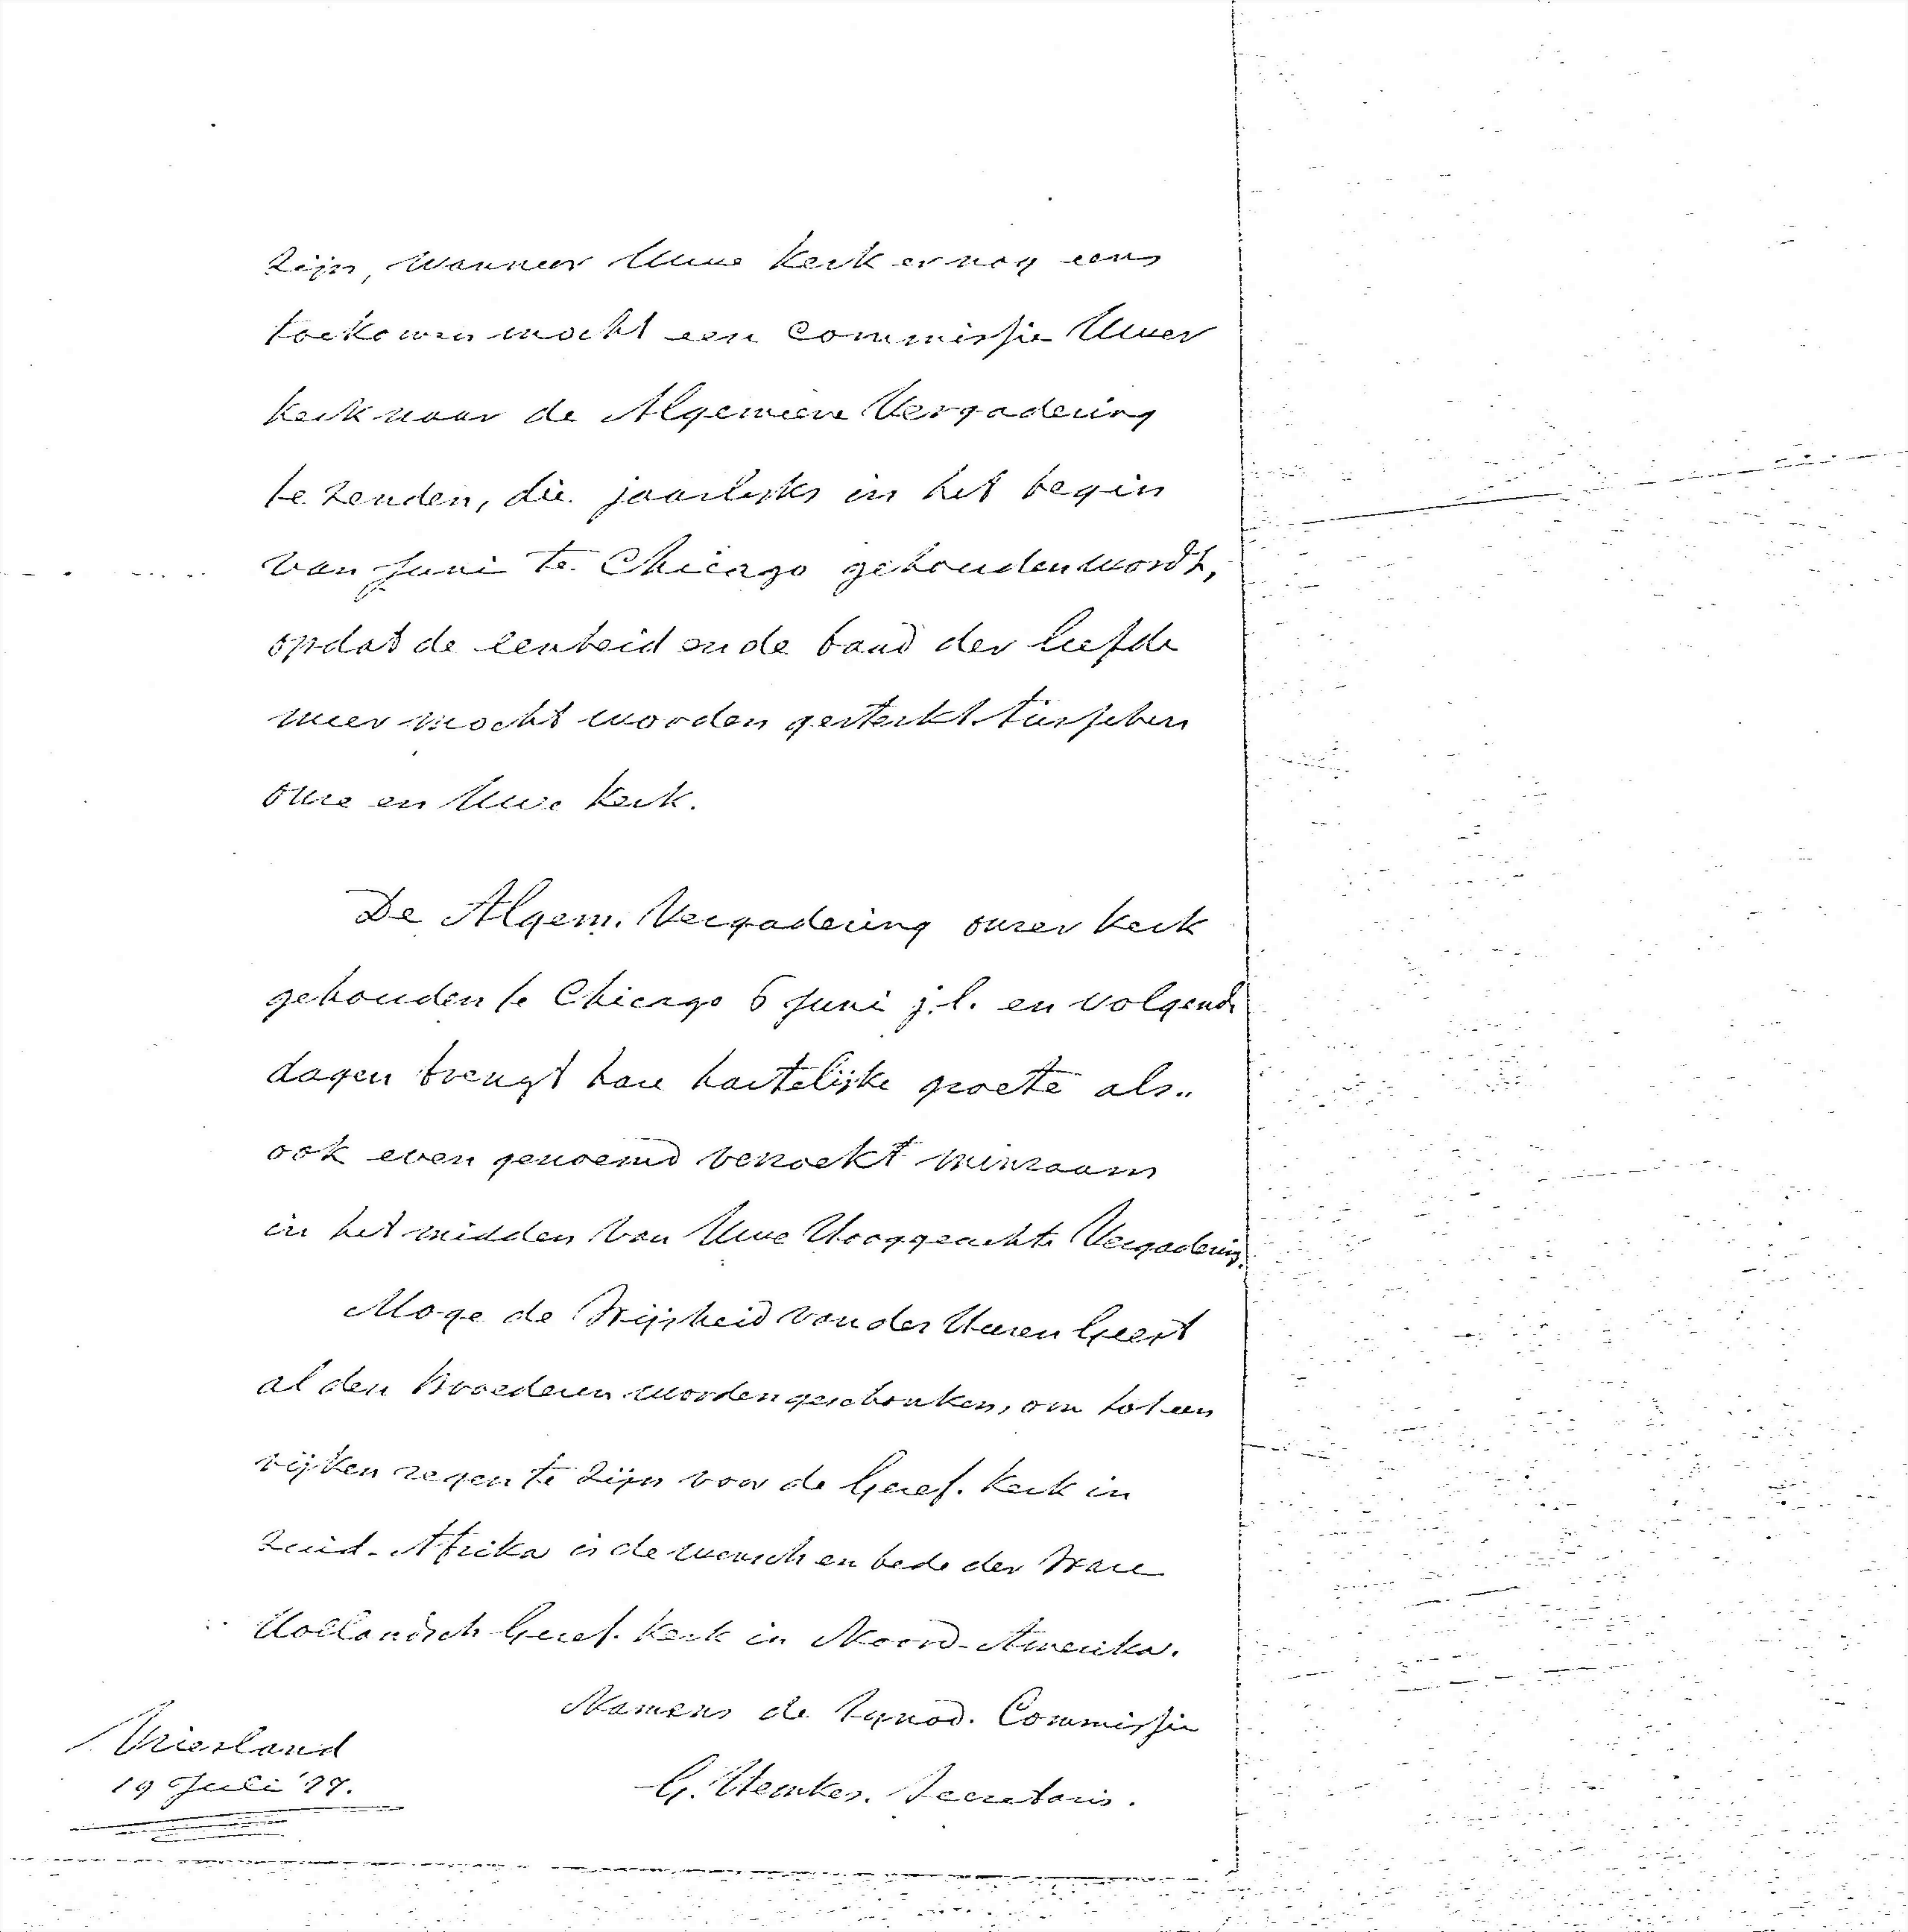 zijn, wanneer Uwe kerk er nog eens
toekomen mocht een Commissie Uwer
kerk naar de Algemeene Vergadering
te zenden, die jaarlijks in het begin
van Juni te Chicago gehouden wordt,
opdat de eenheid en de band der liefde
meer mocht worden gesterkt tusschen
onze en Uwe kerk.
De Algem. Vergadering onzer kerk
gehouden te Chicago 6 Juni j.l. en volgende
dagen brengt hare hartelijke groete als..
ook even genoemd verzoekt minzaam
in het midden van Uwe Hooggeachte Vergadering.
Moge de Wijsheid van des Heeren Geest
al den Broederen worden geschonken, om tot een
rijken zegen te zijn voor de Geref. kerk in
Zuid-Afrika is de wensch en bede der Ware
Hollandsch Geref. kerk in Noord-Amerika.
Namens de Synod. Commissie
Vriesland
19 Juli '77.
G. Hemkes. Secretaris.